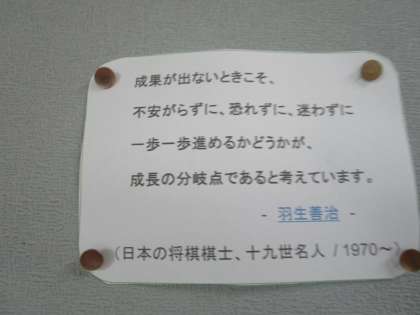 成果が出ないときこそ、
不安がらずに、恐れずに、迷わずに
一歩一歩進めるかどうかが、
成長の分岐点であると考えています。
- 羽生善治 -
（日本の将棋棋士、十九世名人 / 1970～）